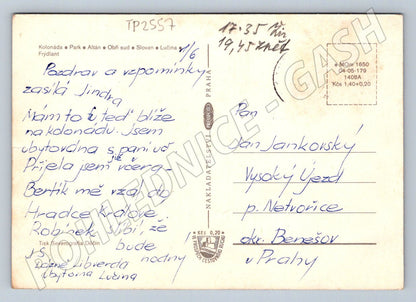 TP2557
Kolonáda • Park • Altán • Obří sud • Slovan • Lučina
Frýdlant
1/6
17.35
19,45 zpět
Pozdrav a vzpomínky
zasílá Jindra
Mám to teď blíže
na kolonádu. Jsem
ubytována s paní uč
Přijela jsem včera.
Bertík mě vzal do
Hradce Králové
Robinek
bude
hodný
Tisk Severografia Děčín
Ubytovna Lučina
NAKLADATELSTVÍ
PRAHA
KČS 0,20
1409A
Kčs 1,40+0,20
Pan
Jan Jankovský
Vysoký Újezd
p. Netvořice
okr. Benešov
u Prahy
POHLEDNICE - GASH